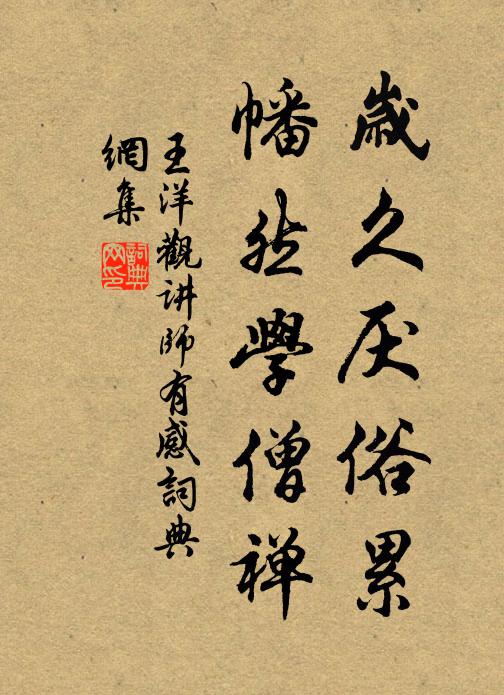 歲久厌俗累
幡然學僧禅
王洋觀讲師有感詞典
網集
詞典
网印